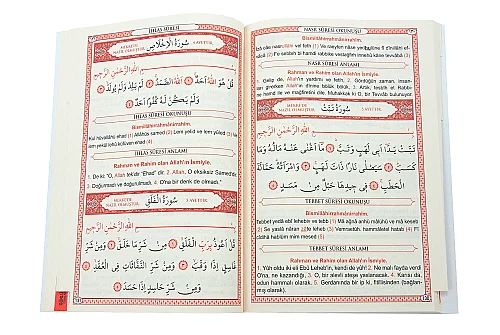 NASR SÛRESİ OKUNUŞU
Bismillâhirrahmânirrahîm.
NASR SÛRESİ ANLAMI
Rahman ve Rahim olan Allah'ın İsmiyle.
1. Gelip de, Allah'ın yardımı ve fetih, 2. Gördüğün zaman, insan-
ları girerken Allah'ın dinine bölük bölük, 3. Artık, tesbih et Rabbi-
ne hamd ile ve mağfiretini dile, Muhakkak ki O, bir Tevvâb bulunuyor.
MEKKE'DE NAZİL OLMUŞTUR.
سُورَةُ تَبَّتْ
5 AYETTİR.
بِسْمِ اللّٰهِ الرَّحْمٰنِ الرَّحِيمِ
تَبَّتْ يَدَا اَبِى لَهَبٍ وَتَبَّ ﴿١﴾ مَا اَغْنٰى عَنْهُ مَالُهُ وَمَا
كَسَبَ ﴿٢﴾ سَيَصْلٰى نَارًا ذَاتَ لَهَبٍ ﴿٣﴾ وَامْرَاَتُهُ حَمَّالَةَ
الْحَطَبِ ﴿٤﴾ فِى جِيدِهَا حَبْلٌ مِنْ مَسَدٍ ﴿٥﴾
TEBBET SÛRESİ OKUNUŞU
Bismillâhirrahmânirrahîm.
Tebbet yedâ ebî lehebiv ve tebb (1) Mâ ağnâ anhü mâlühû ve mâ keseb
(2) Se yaslâ nâran zâte leheb (3) Vemraetüh, hammâletel hatab (4) Fî
cîdihâ hablüm mim mesed (5)
TEBBET SÛRESİ ANLAMI
Rahman ve Rahim olan Allah'ın İsmiyle.
1. Yâh oldu iki eli Ebû Leheb'in, kendi da yâh! 2. Ne malı fayda verdi
O'na, ne kazandığı, 3. O, bir alevli ateşe yaslanacak. 4. Karısı da,
odun hammalı olarak. 5. Gerdanında bir ip ki, fitilisinden (bağlan-
mış olarak).
İHLAS SÛRESİ
MEKKE'DE NAZİL OLMUŞTUR.
سُورَةُ الْاِخْلَاصِ
4 AYETTİR.
بِسْمِ اللّٰهِ الرَّحْمٰنِ الرَّحِيمِ
قُلْ هُوَ اللّٰهُ اَحَدٌ ﴿١﴾ اَللّٰهُ الصَّمَدُ ﴿٢﴾ لَمْ يَلِدْ وَلَمْ يُولَدْ ﴿٣﴾
وَلَمْ يَكُنْ لَهُ كُفُوًا اَحَدٌ ﴿٤﴾
İHLAS SÛRESİ OKUNUŞU
Bismillâhirrahmânirrahîm.
Kul hüvallâhü ehad (1) Allâhüs samed (2) Lem yelid ve lem yûled (3) Ve lem
yekül lehû küfüven ehad (4)
İHLAS SÛRESİ ANLAMI
Rahman ve Rahim olan Allah'ın İsmiyle.
1. De ki: "O, Allah tek'dir "Ehad" dir. 2. Allah, O eksiksiz Samed'dir.
3. Doğurmadı ve doğurulmadı. 4. O'na bir denk de olmadı."
MEKKE'DE NAZİL OLMUŞTUR.
سُورَةُ الْفَلَقِ
5 AYETTİR.
بِسْمِ اللّٰهِ الرَّحْمٰنِ الرَّحِيمِ
قُلْ اَعُوذُ بِرَبِّ الْفَلَقِ ﴿١﴾ مِنْ شَرِّ مَا خَلَقَ ﴿٢﴾ وَمِنْ شَرِّ
غَاسِقٍ اِذَا وَقَبَ ﴿٣﴾ وَمِنْ شَرِّ النَّفَّاثَاتِ فِى الْعُقَدِ ﴿٤﴾
وَمِنْ شَرِّ حَاسِدٍ اِذَا حَسَدَ ﴿٥﴾